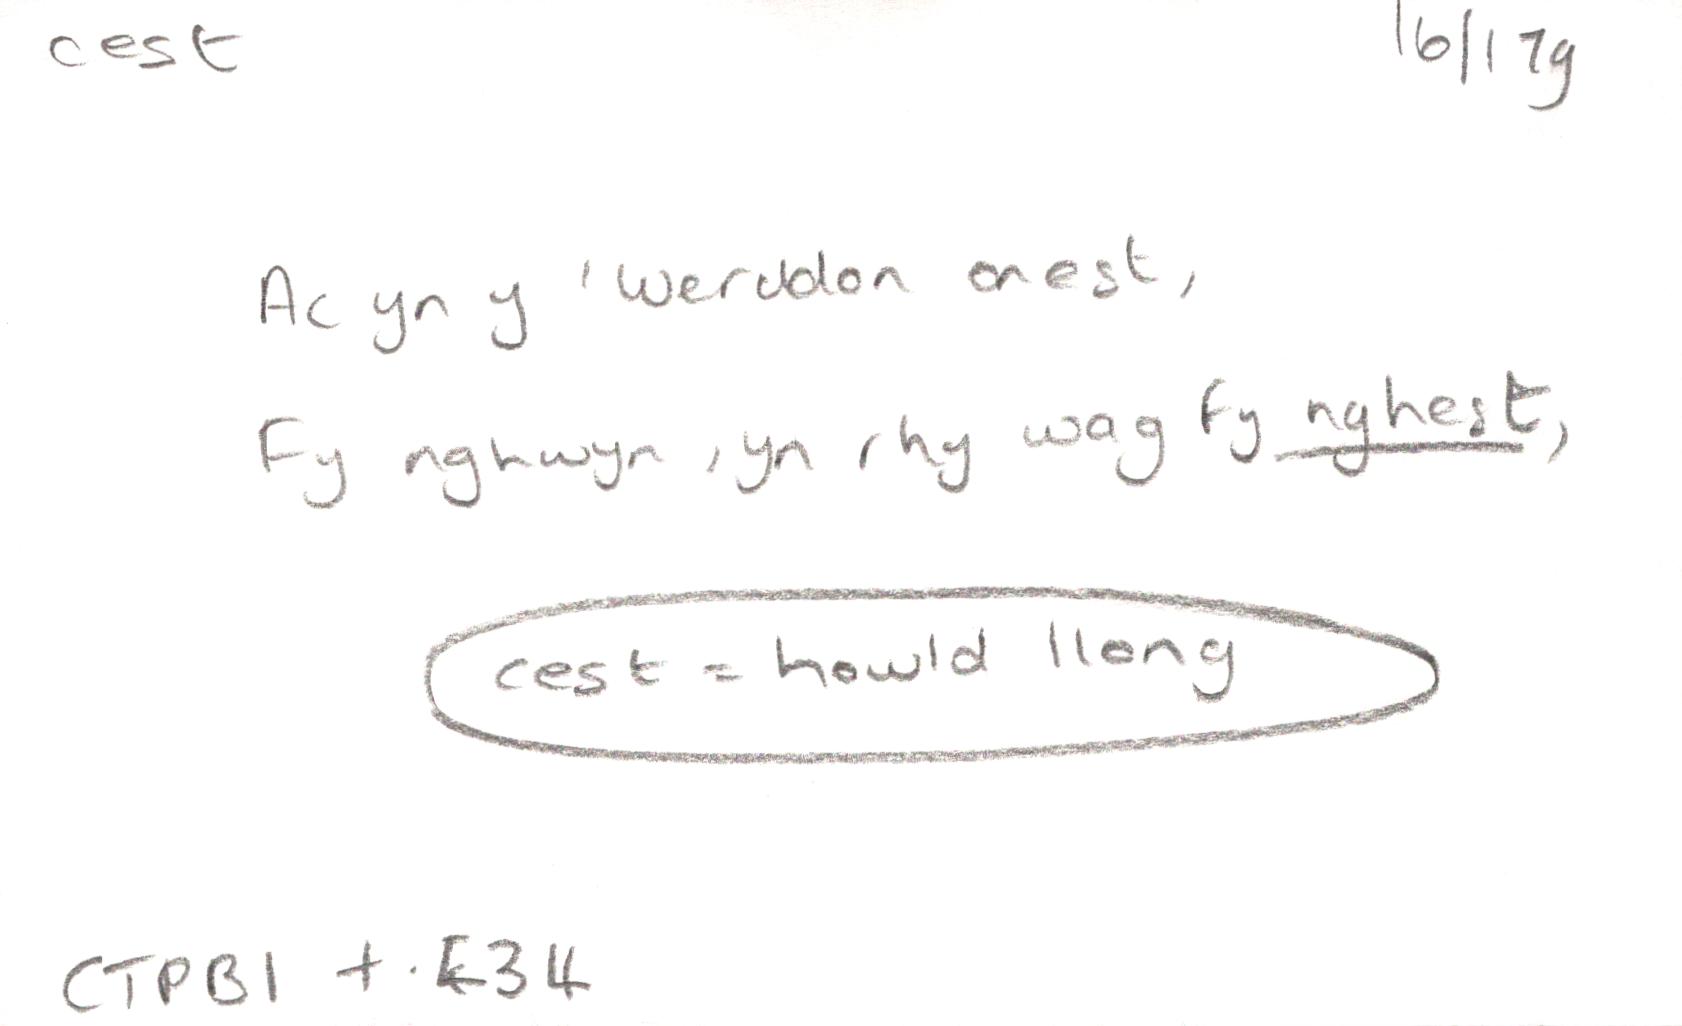 cest 16/17g
Ac yn y 'Werddon onest,
Fy nghwyn, yn rhy wag fy nghest,
cest = howld llong
CTPB1 t. 34